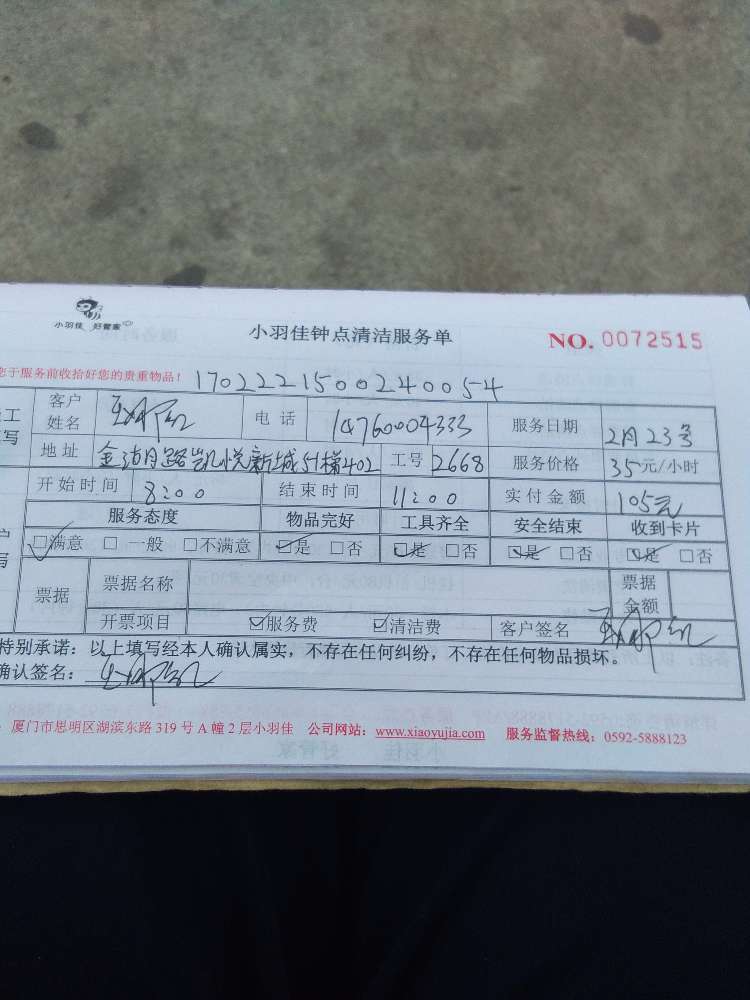 小羽佳 好管家
小羽佳钟点清洁服务单
NO. 0072515
您于服务前收拾好您的贵重物品！ 170222150024005-4
工 写 客户姓名 电话 14760004333 服务日期 2月23号
地址 金湖路凯悦新城51梯402 工号 2668 服务价格 35元/小时
开始时间 8:00 结束时间 11:00 实付金额 105元
服务态度 物品完好 工具齐全 安全结束 收到卡片
户 写 ☑满意 □一般 □不满意 ☑是 □否 ☑是 □否 ☑是 □否 ☑是 □否
票据 票据名称 票据金额
开票项目 ☑服务费 ☑清洁费 客户签名
特别承诺：以上填写经本人确认属实，不存在任何纠纷，不存在任何物品损坏。
确认签名：
厦门市思明区湖滨东路 319 号 A 幢 2 层小羽佳 公司网站：www.xiaoyujia.com 服务监督热线：0592-5888123